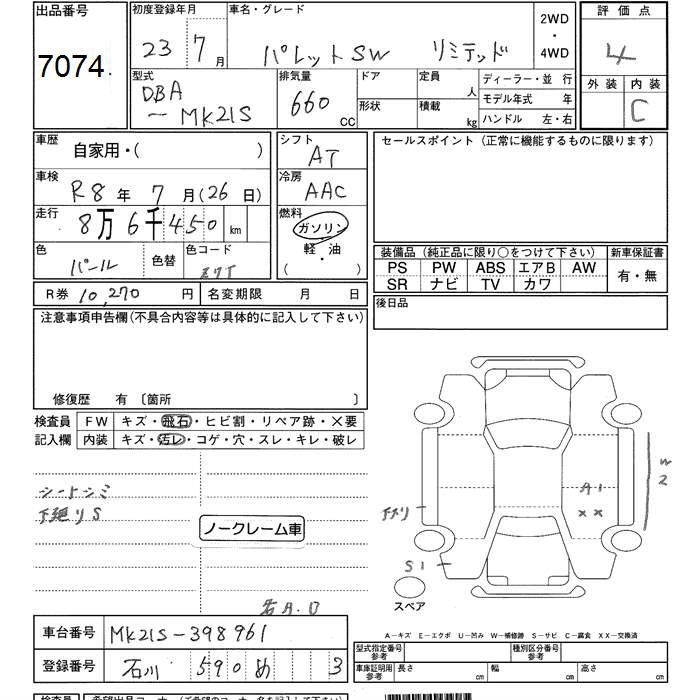 出品番号
7074
初度登録年月
23 7月
車名・グレード
パレットSW リミテッド
2WD
・
4WD
評価点
4
外装 内装
C
型式
DBA
ー MK21S
排気量
660 CC
ドア
形状
定員 人
積載 kg
ディーラー・並 行
モデル年式 年
ハンドル 左・右
車歴
自家用・( )
車検
R8年 7月(26日)
走行
8万6千450 km
色
パール
色替
色コード
Z7T
シフト
AT
冷房
AAC
燃料
ガソリン
軽・油
( )
セールスポイント (正常に機能するものに限ります)
装備品 (純正品に限り○をつけて下さい)
新車保証書
PS PW ABS エアB AW
SR ナビ TV カワ
有・無
R券 10,270 円
名変期限 月 日
後日品
注意事項申告欄(不具合内容等は具体的に記入して下さい)
修復歴 有 〔箇所 〕
検査員 FW キズ・飛石・ヒビ割・リペア跡・×要
記入欄 内装 キズ・汚レ・コゲ・穴・スレ・キレ・破レ
シートシミ
下廻りS
ノークレーム車
W2
A1
××
S1
スペア
A-キズ E-エクボ U-凹み W-補修跡 S-サビ C-腐食 XX-交換済
車台番号 MK21S-398961
登録番号 石川 590 め 3
型式指定番号
参考
種別区分番号
参考
車庫証明用
参考
長さ cm 幅 cm 高さ cm